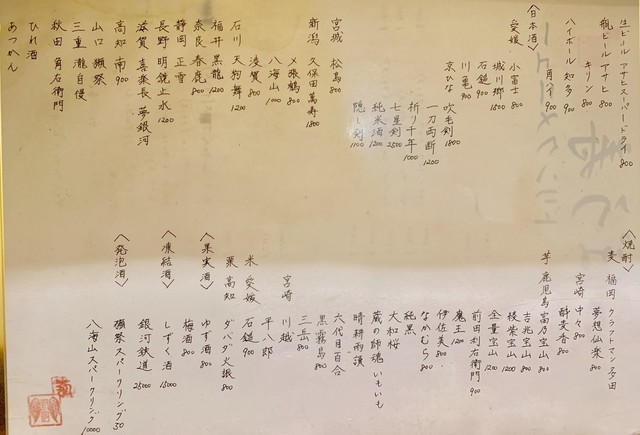 生ビール アサヒスーパードライ 800
瓶ビール アサヒ 800
キリン 800
ハイボール 知多 900
角ハイ 900
〈日本酒〉
愛媛 小富士 800
城川郷 1500
石鎚 900
川亀 900
京ひな 吹毛剣 1800
一刀両断 1200
祈り千年 1000
七星剣 2500
純米酒 1200
隠し剣 1100
宮城 松島 800
新潟 久保田萬寿 1800
〆張鶴 800
八海山 1000
滋賀 800
石川 天狗舞 1200
福井 黒龍 1200
奈良 春鹿 800
静岡 正雪
長野 明鏡止水 1200
滋賀 喜楽長 夢銀河
高知 南 900
山口 獺祭
三重 瀧自慢
秋田 角右衛門
ひれ酒
あつかん
〈焼酎〉
麦 福岡 クラフトマン多田
夢想仙楽 800
宮崎 中々 800
酔麦香 800
芋 鹿児島 富乃宝山 800
吉兆宝山 800
萬宝山 1200
全量宝山 1200
前田利右衛門 900
魔王 1200
伊佐美 800
なかむら 800
純黒
大和桜
蔵の師魂 いもいも
晴耕雨讀
六代目百合
黒霧島 800
三岳 800
宮崎 川越
平八郎
米 愛媛 石鎚 900
栗 高知 ダバダ火振 800
〈果実酒〉
ゆず酒 800
梅酒 800
〈凍結酒〉
しずく酒 15000
銀河鉄道 25000
〈発泡酒〉
獺祭スパークリング 50
八海山スパークリング 10000